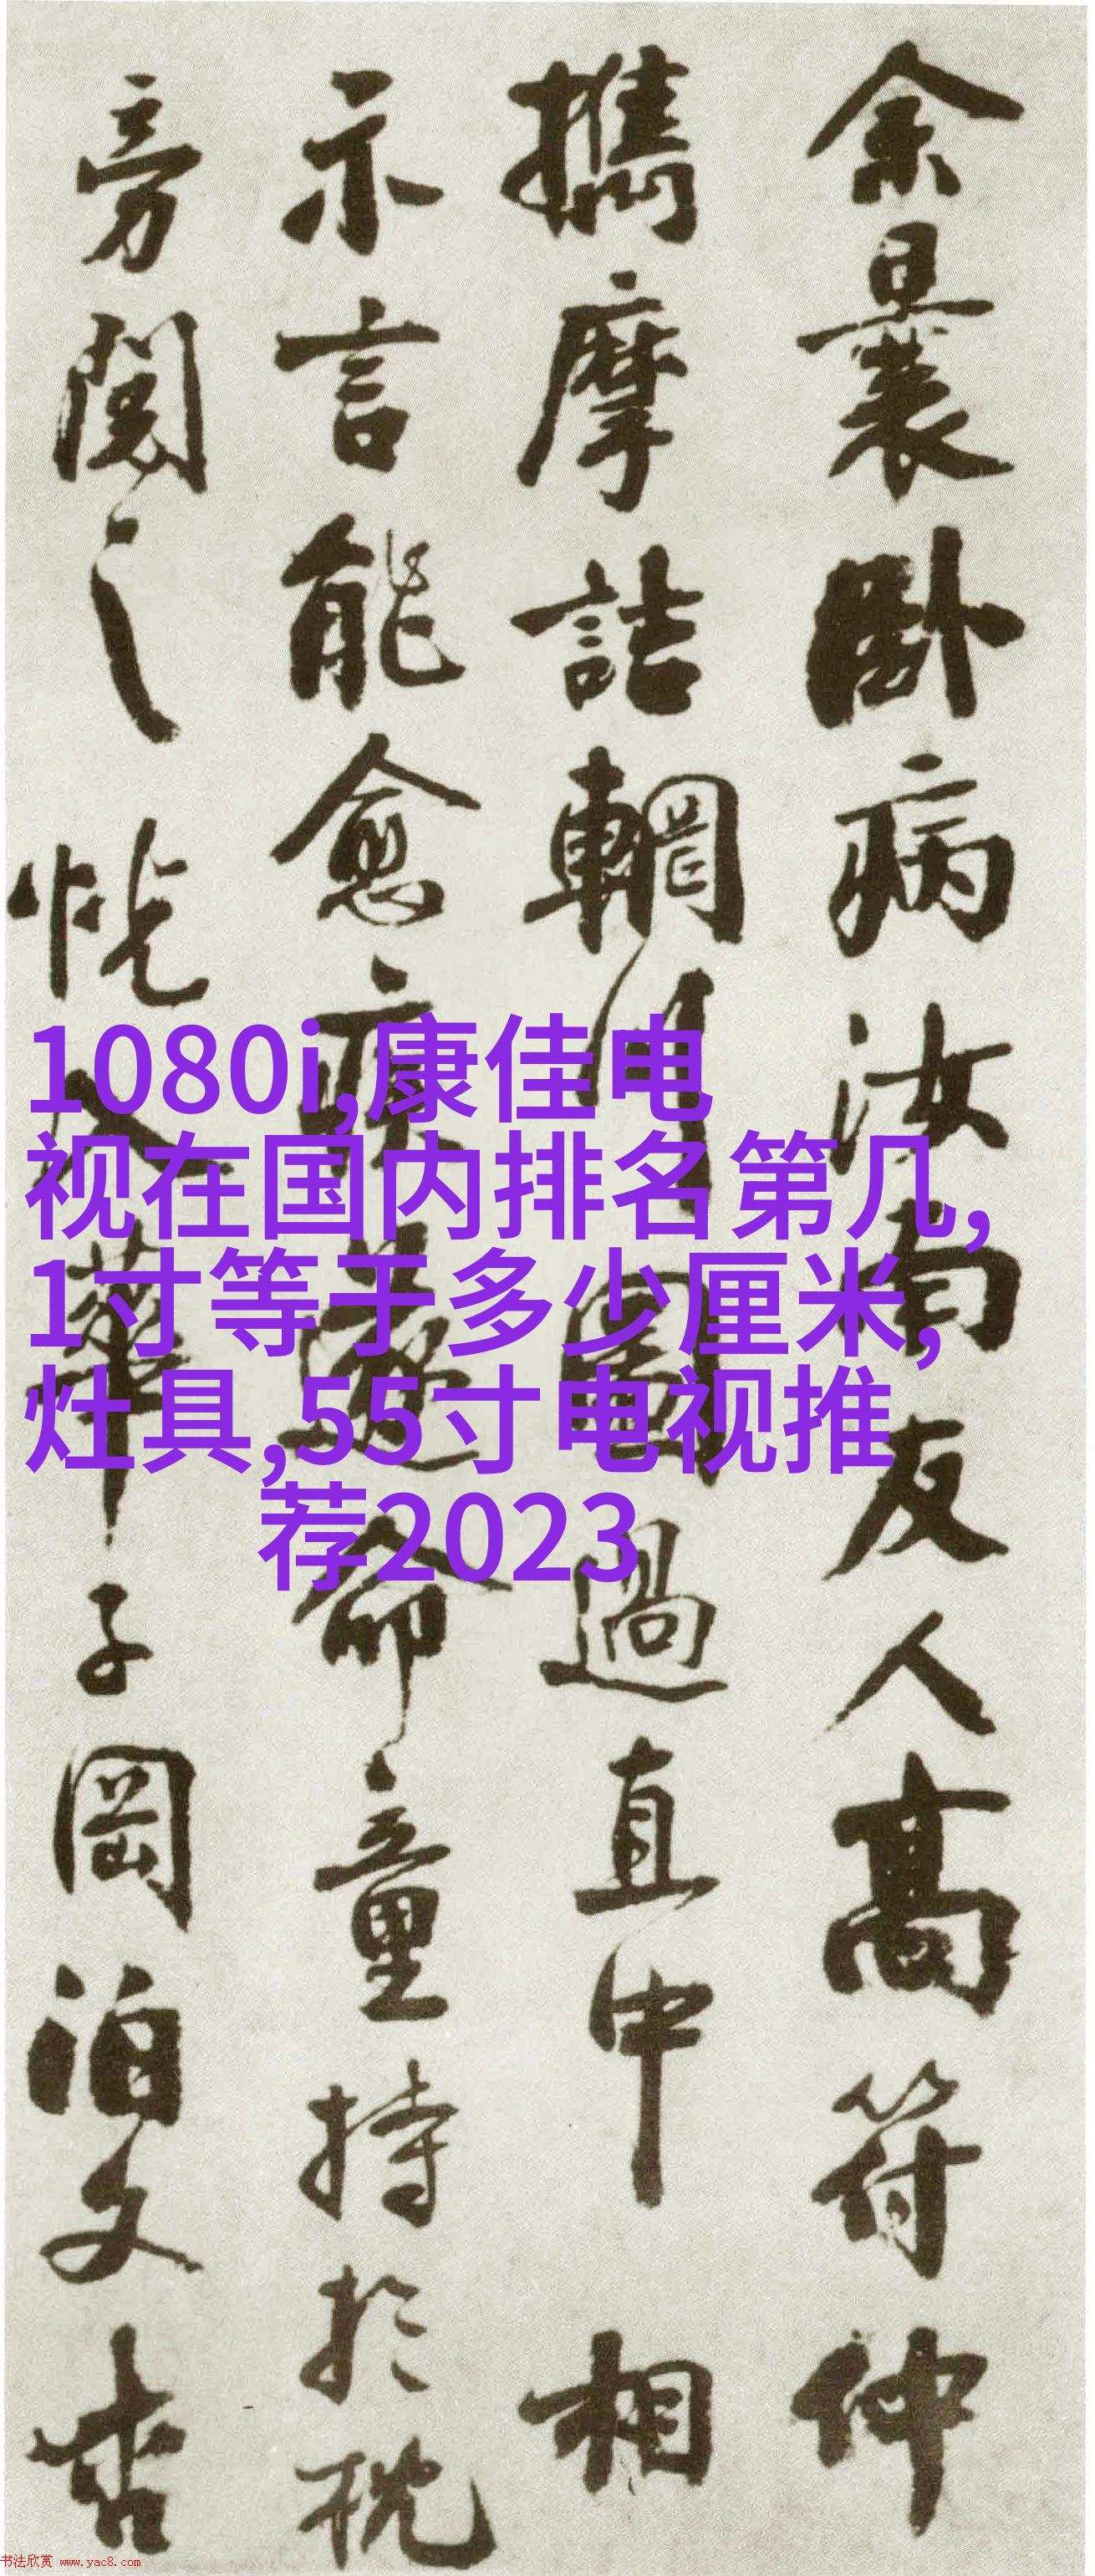 余曩卧病汝南友人高符仲
攜摩詰輞川圖過直中相
示言能愈疾遂命童持於枕
旁閱之恍入華子岡泊文杏
1080i,康佳电
视在国内排名第几,
1寸等于多少厘米,
灶具,55寸电视推
荐2023
书法欣赏 www.yac8.com